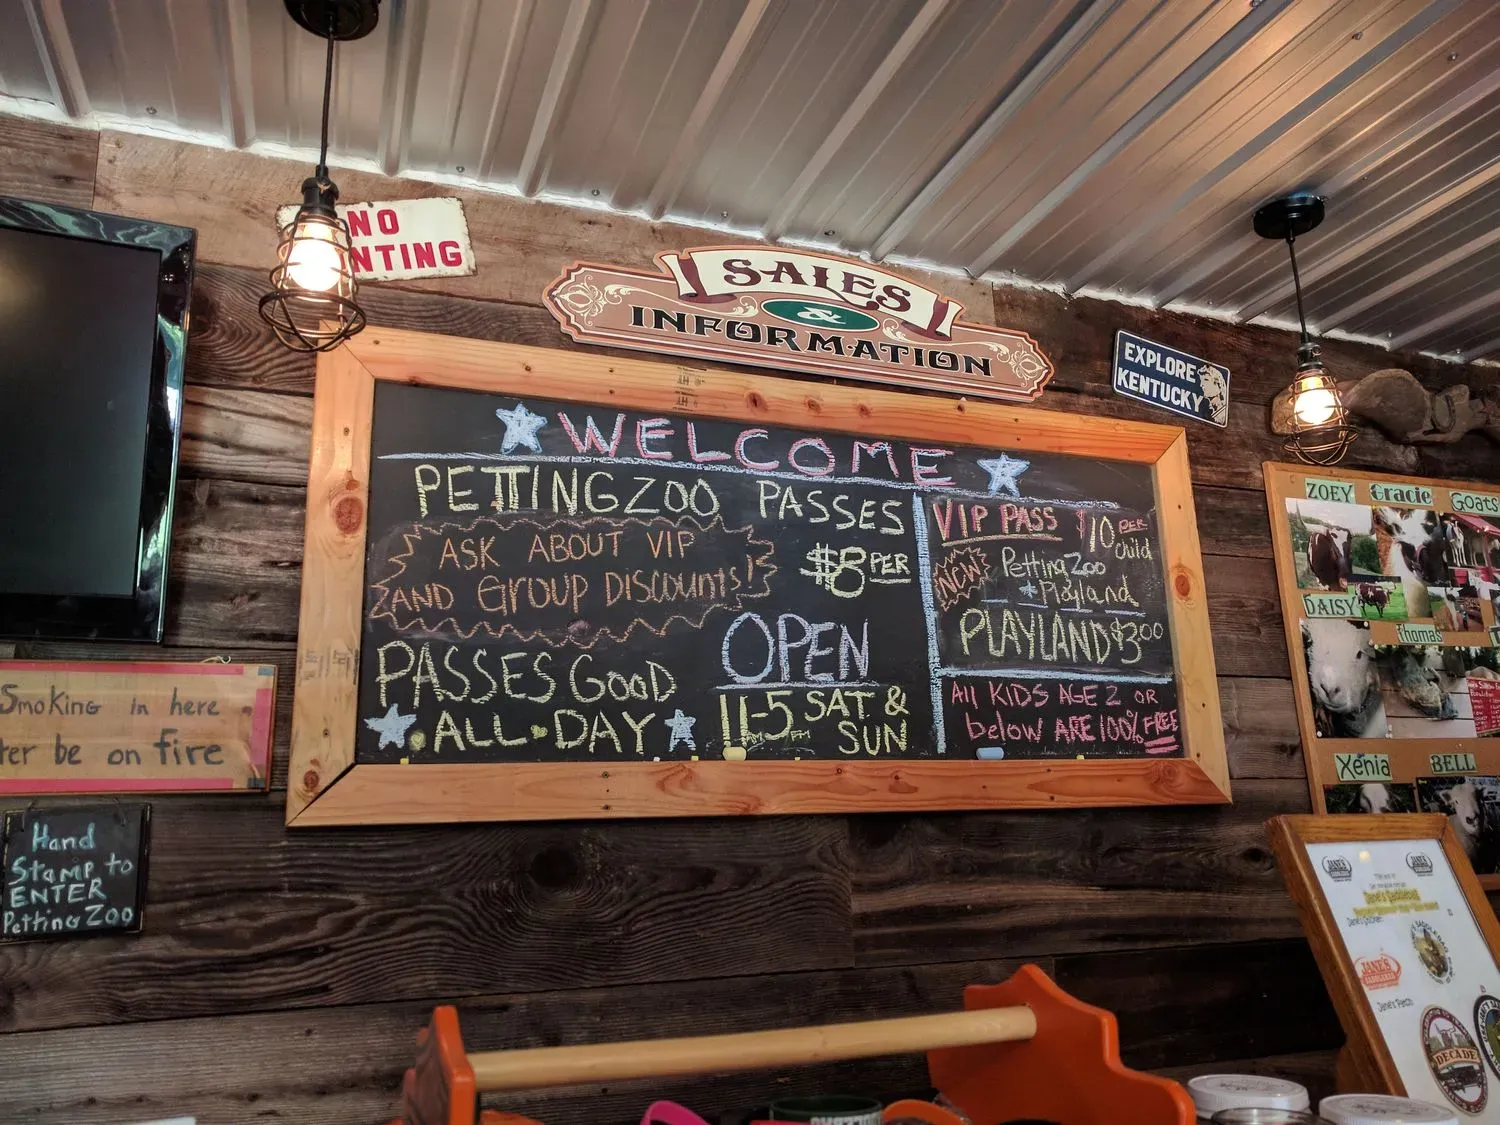 NO
NTING
SALES
&
INFORMATION
EXPLORE
KENTUCKY
WELCOME
PETTING ZOO PASSES
$8 PER
ASK ABOUT VIP
AND GROUP DISCOUNTS!
PASSES GOOD
ALL DAY
OPEN
11AM-5PM SAT. &
SUN
VIP PASS $10 PER
Child
NEW
Petting Zoo
Playland
PLAYLAND $3.00
All KIDS AGE 2 OR
below ARE 100% FREE
Smoking in here
ter be on fire
Hand
Stamp to
ENTER
Petting Zoo
ZOEY
Gracie
Goats
DAISY
Thomas
Xenia
BELL
JANE'S
JANE'S
Jane's Saddlebag
JANE'S
DECADE